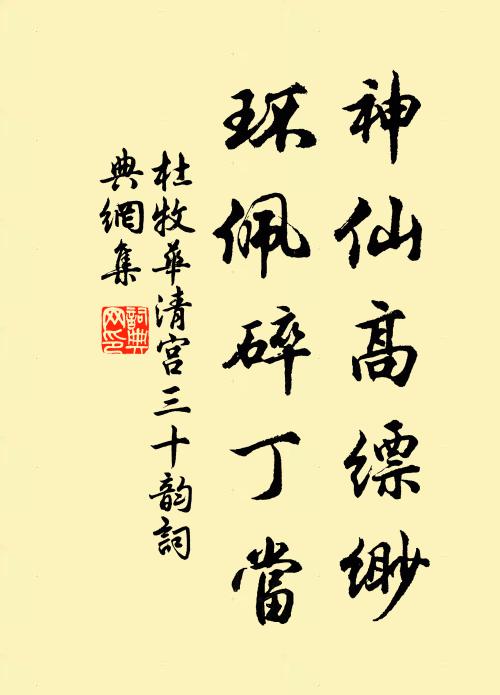 神仙高縹緲
环佩碎丁當
杜牧華清宫三十韵詞
典網集
詞典
网印